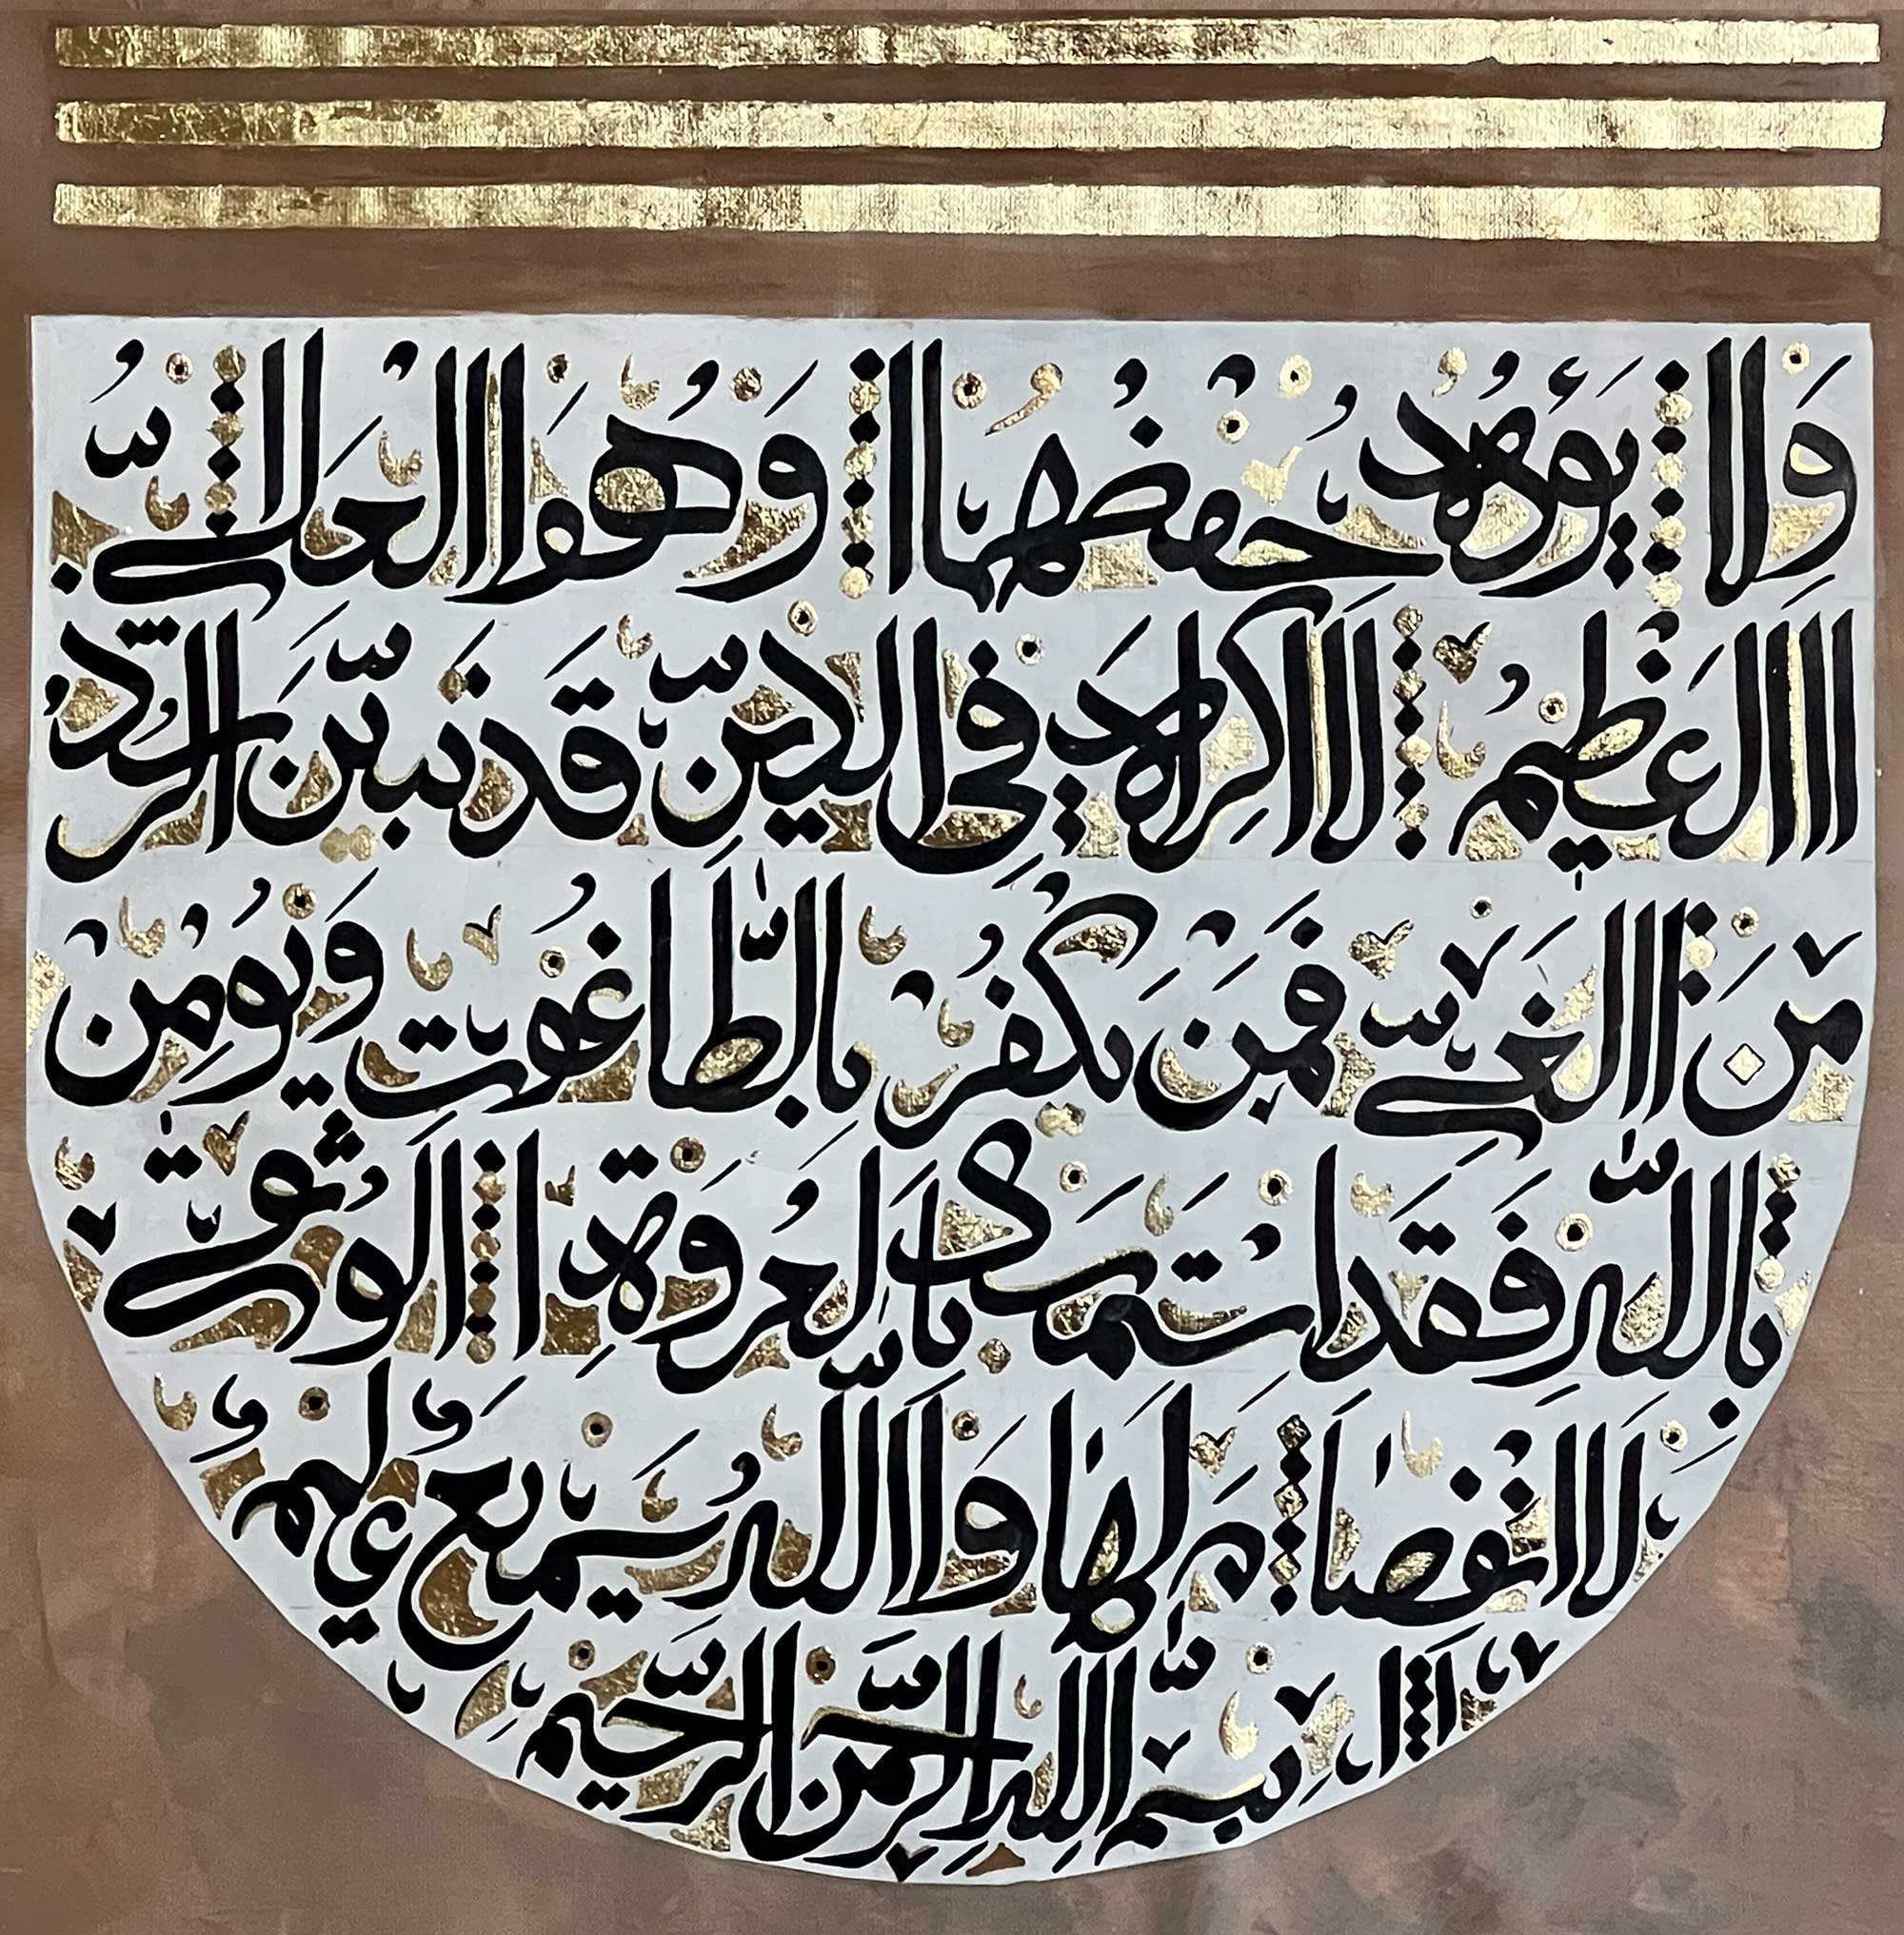 وَلَا يَؤُدُهُ حِفْظُهُمَا وَهُوَ الْعَلِيُّ
الْعَظِيمُ لَا إِكْرَاهَ فِي الدِّينِ قَد تَّبَيَّنَ الرُّشْدُ
مِنَ الْغَيِّ فَمَن يَكْفُرْ بِالطَّاغُوتِ وَيُؤْمِن
بِاللَّهِ فَقَدِ اسْتَمْسَكَ بِالْعُرْوَةِ الْوُثْقَى
لَا انفِصَامَ لَهَا وَاللَّهُ سَمِيعٌ عَلِيمٌ
بِسْمِ اللَّهِ الرَّحْمَنِ الرَّحِيمِ